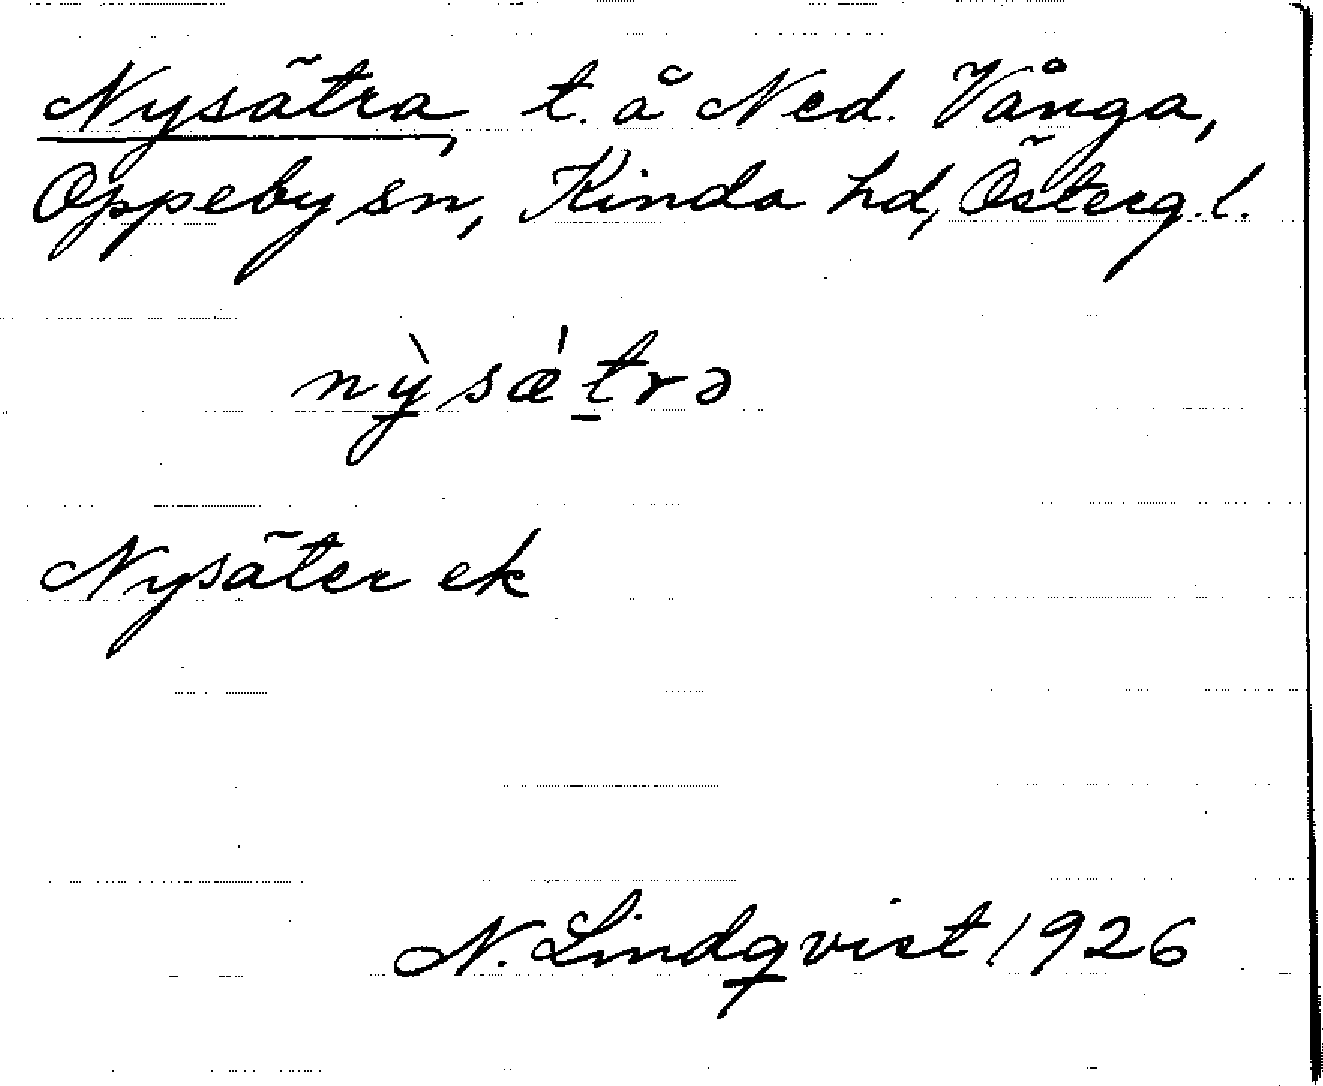 Nysätra, t. å Ned. Vånga,
Oppeby sn, Kinda hd, Österg.l.
nỳsǽtrə
Nysäter ek
N. Lindqvist 1926